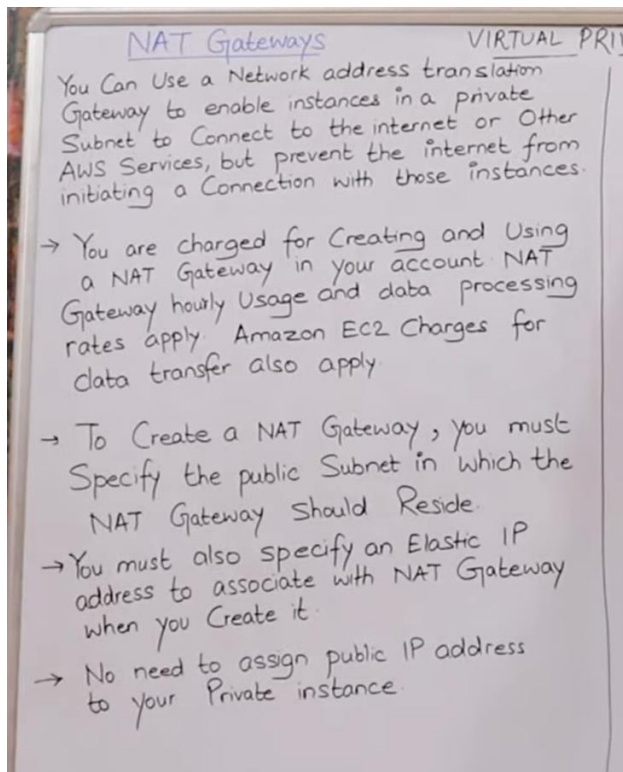 NAT Gateways
VIRTUAL PRIV
You Can Use a Network address translation
Gateway to enable instances in a private
Subnet to Connect to the internet or Other
AWS Services, but prevent the internet from
initiating a Connection with those instances.
→ You are charged for Creating and Using
a NAT Gateway in your account. NAT
Gateway hourly Usage and data processing
rates apply. Amazon EC2 Charges for
data transfer also apply.
→ To Create a NAT Gateway, you must
Specify the public Subnet in which the
NAT Gateway Should Reside.
→ You must also specify an Elastic IP
address to associate with NAT Gateway
when you Create it.
→ No need to assign public IP address
to your Private instance.